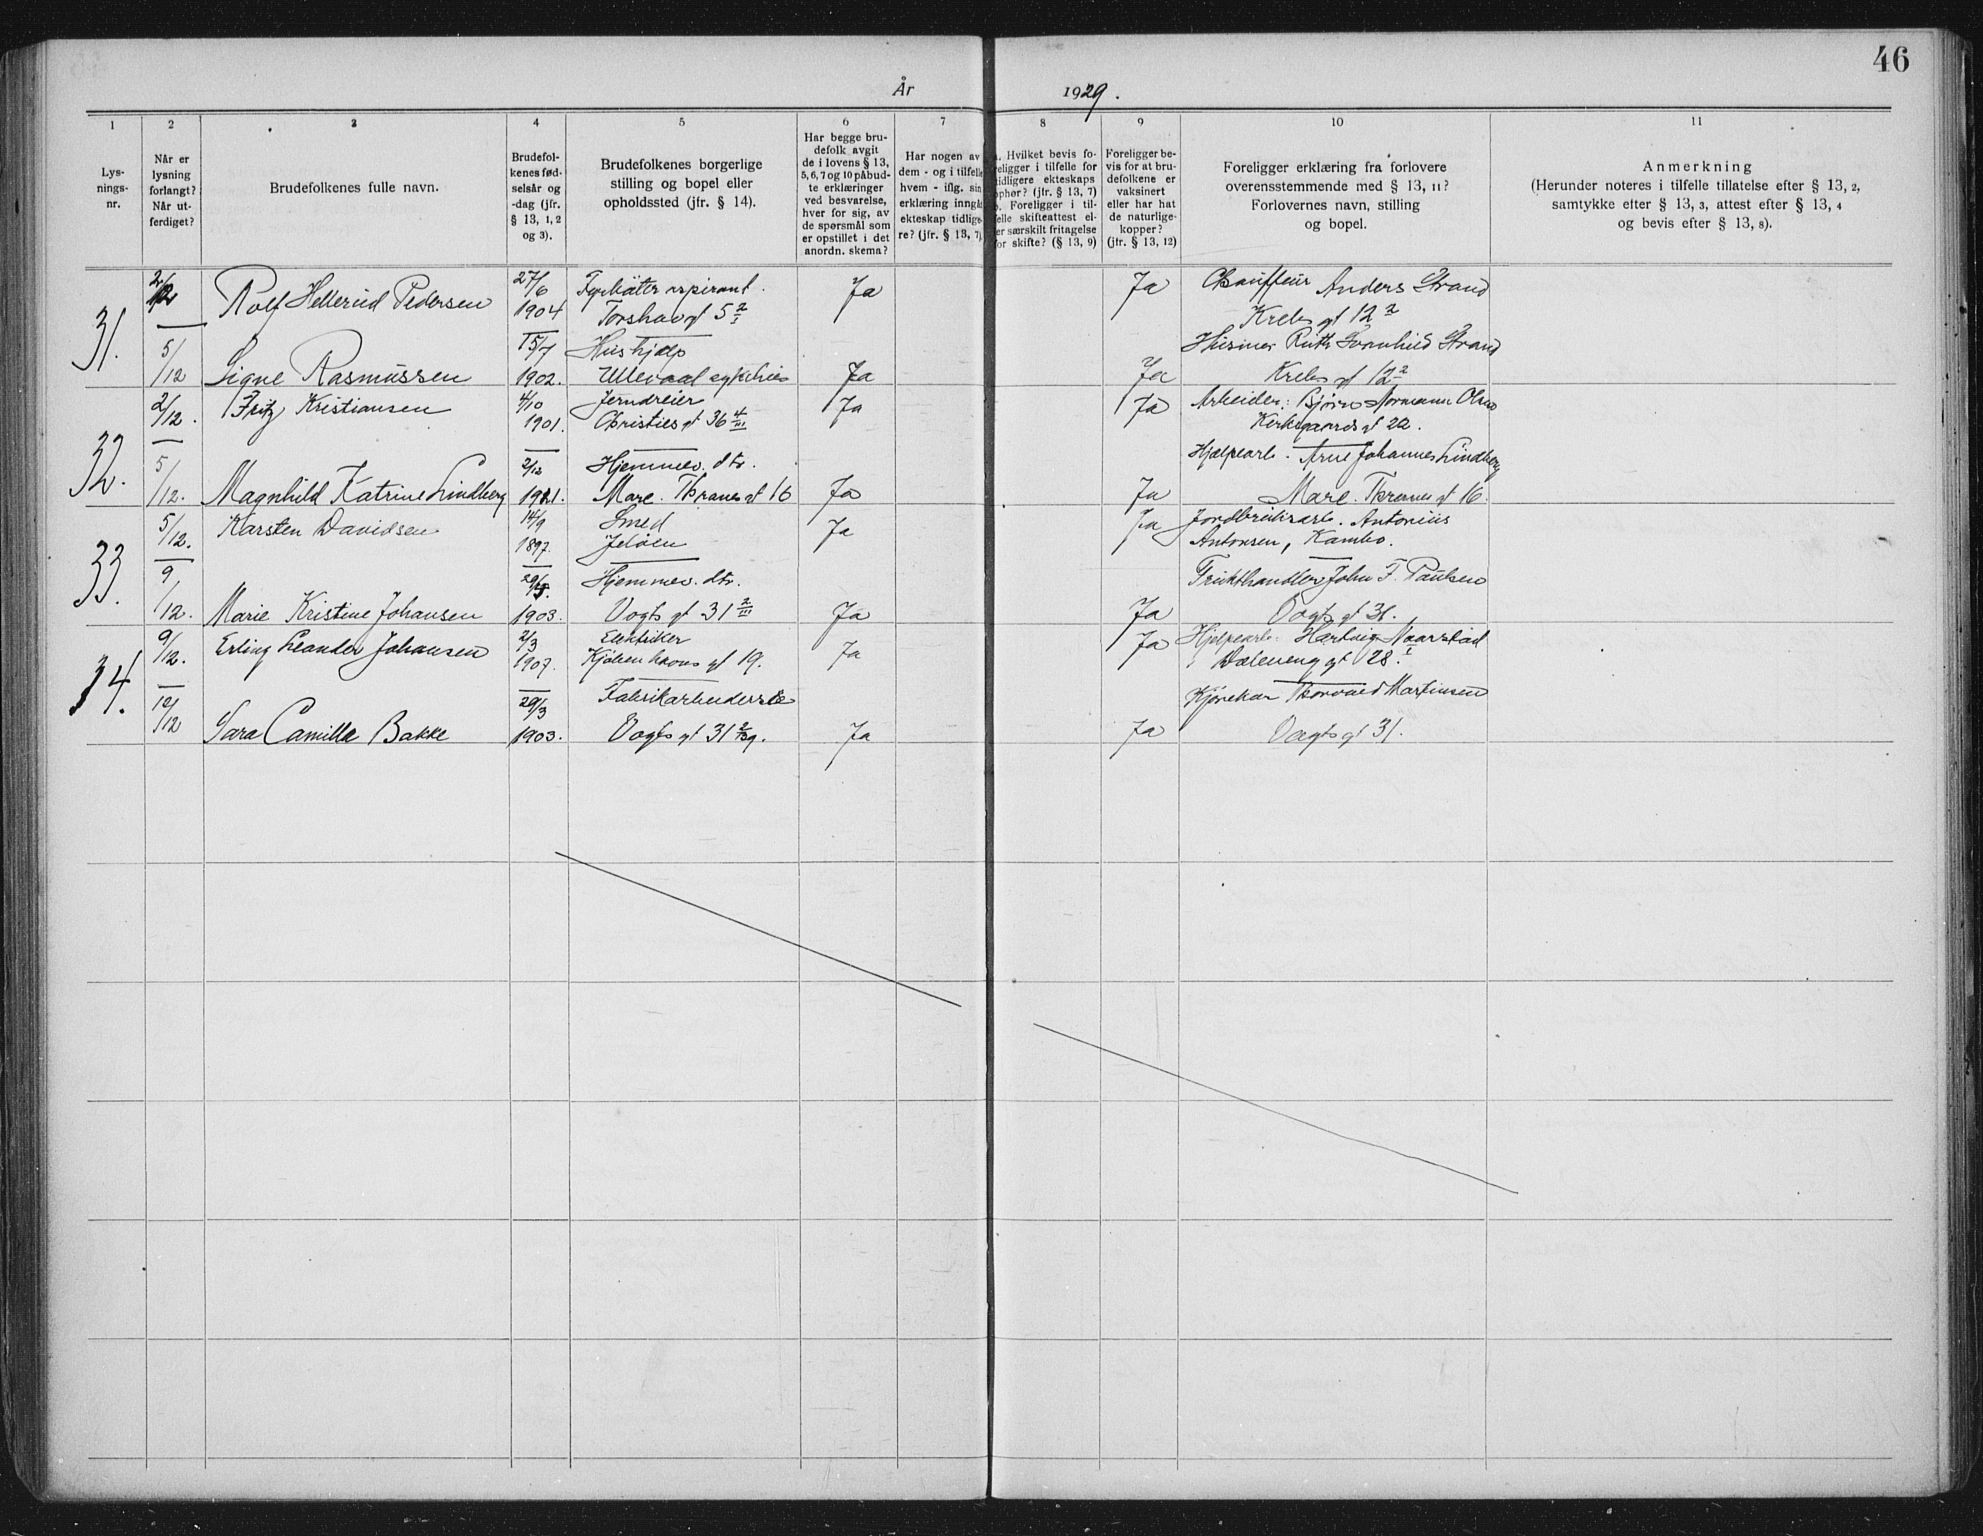 46
År 1929.
1 2 3 4 5 6 7 8 9 10 11
Lys-
nings-
nr.
Når er
lysning
forlangt?
Når ut-
ferdiget?
Brudefolkenes fulle navn.
Brudefol-
kenes fød-
selsår og
-dag (jfr.
§ 13, 1, 2
og 3).
Brudefolkenes borgerlige
stilling og bopel eller
opholdssted (jfr. § 14).
Har begge bru-
defolk avgit
de i lovens § 13,
5, 6, 7 og 10 påbud-
te erklæringer
ved besvarelse,
hver for sig, av
de spørsmål som
er opstillet i det
anordn. skema?
Har nogen av
dem - og i tilfelle
hvem - iflg. sin
erklæring inngå
ekteskap tidlige-
re? (jfr. § 13, 7)
a. Hvilket bevis fo-
religger i tilfelle for
tidligere ekteskaps
ophør? (jfr. § 13, 7)
b. Foreligger i til-
felle skifteattest el-
er særskilt fritagelse
for skifte? (§ 13, 9)
Foreligger be-
vis for at bru-
defolkene er
vaksinert
eller har hat
de naturlige-
kopper?
(jfr. § 13, 12)
Foreligger erklæring fra forlovere
overensstemmende med § 13, 11?
Forlovernes navn, stilling
og bopel.
Anmerkning
(Herunder noteres i tilfelle tillatelse efter § 13, 2,
samtykke efter § 13, 3, attest efter § 13, 4
og bevis efter § 13, 8).
31.
2/12 Rolf Hellerud Pedersen 27/6 aspirant. Ja Ja Chauffeur Anders Strand
1904 Torshavgt 5 2/I Krebs gt 12 2
5/12 15/7 Hushjelp Ruth Svanhild Strand
Signe Rasmussen 1902. Ullevaal sykehus Ja Ja Krebs gt 12 2
32.
2/12. Fritz Kristiansen 4/10 Jerndreier Ja Ja Arbeider: Bjørn Normann Olsen
1901. Christies gt 36 4/III Kirkegaards gt 22.
5/12. 2/12 Hjemmev. dtr. Hjælpearb. Arne Johannes Lindberg
Magnhild Katrine Lindberg Marc. Thranes gt 16 Ja Ja Marc. Thranes gt 16.
33.
5/12. Karsten Davidsen 14/9 Smed Ja Ja Jordbruksarb. Antonius
1897. Jeløen Antonsen, Kambo.
9/12. Hjemmev. dtr. Frukthandler John F. Paulsen
Marie Kristine Johansen 1903. Vogts gt 31 2/III Ja Ja Vogts gt 31.
34.
9/12. Erling Leander Johansen 2/3 Elektriker Ja Ja Hjelpearb. Hartvig Naarstad
1907. Kjøbenhavns gt 19. Dæleneng gt 28. I
12/12 29/3 Fabrikarbeiderske Kjørekar Thorvald Martinsen
Sara Camilla Bakke 1903. Vogts gt 31 Ja Ja Vogts gt 31.